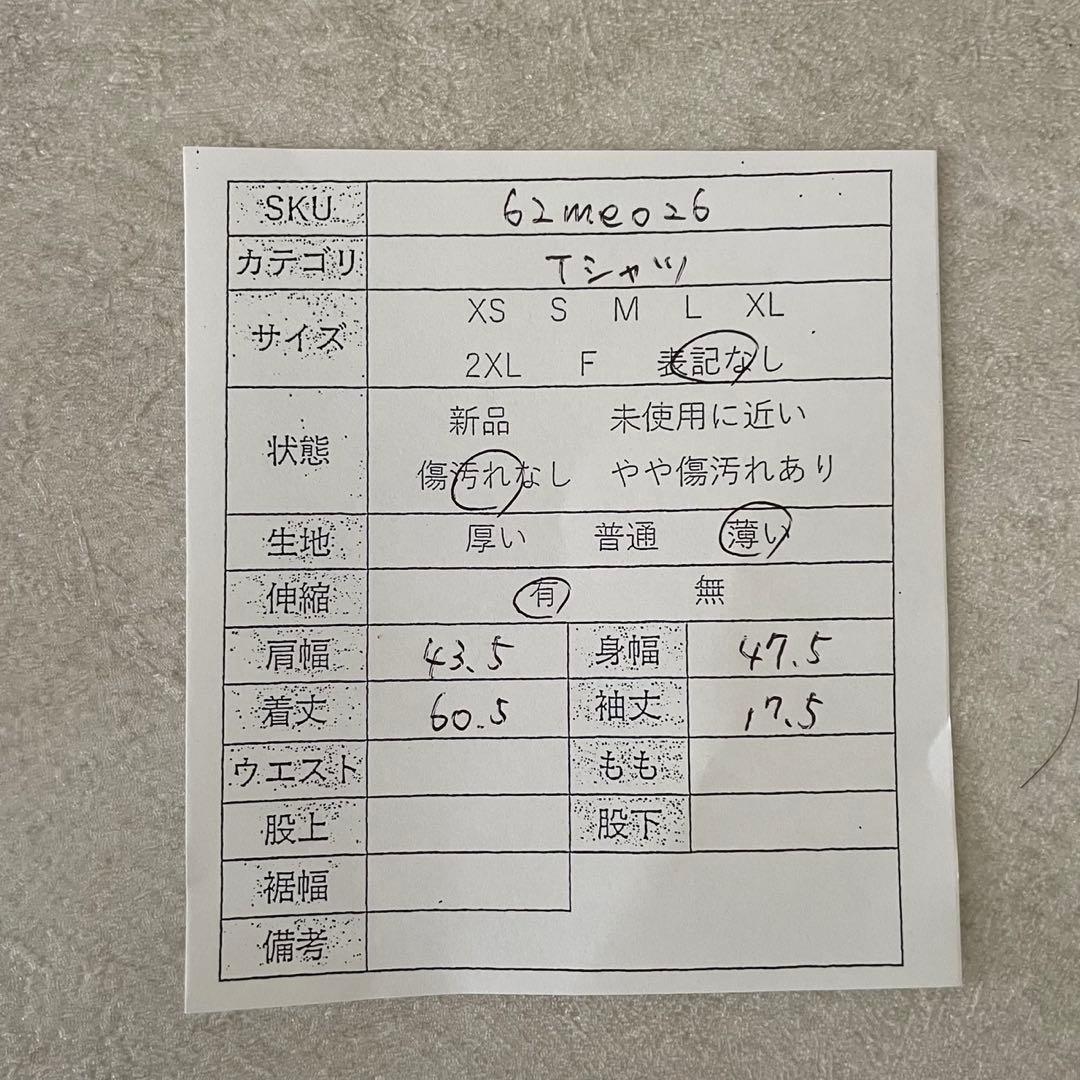 SKU 62me026
カテゴリ Tシャツ
サイズ XS S M L XL
2XL F 表記なし
状態 新品 未使用に近い
傷汚れなし やや傷汚れあり
生地 厚い 普通 薄い
伸縮 有 無
肩幅 43.5 身幅 47.5
着丈 60.5 袖丈 17.5
ウエスト もも
股上 股下
裾幅
備考